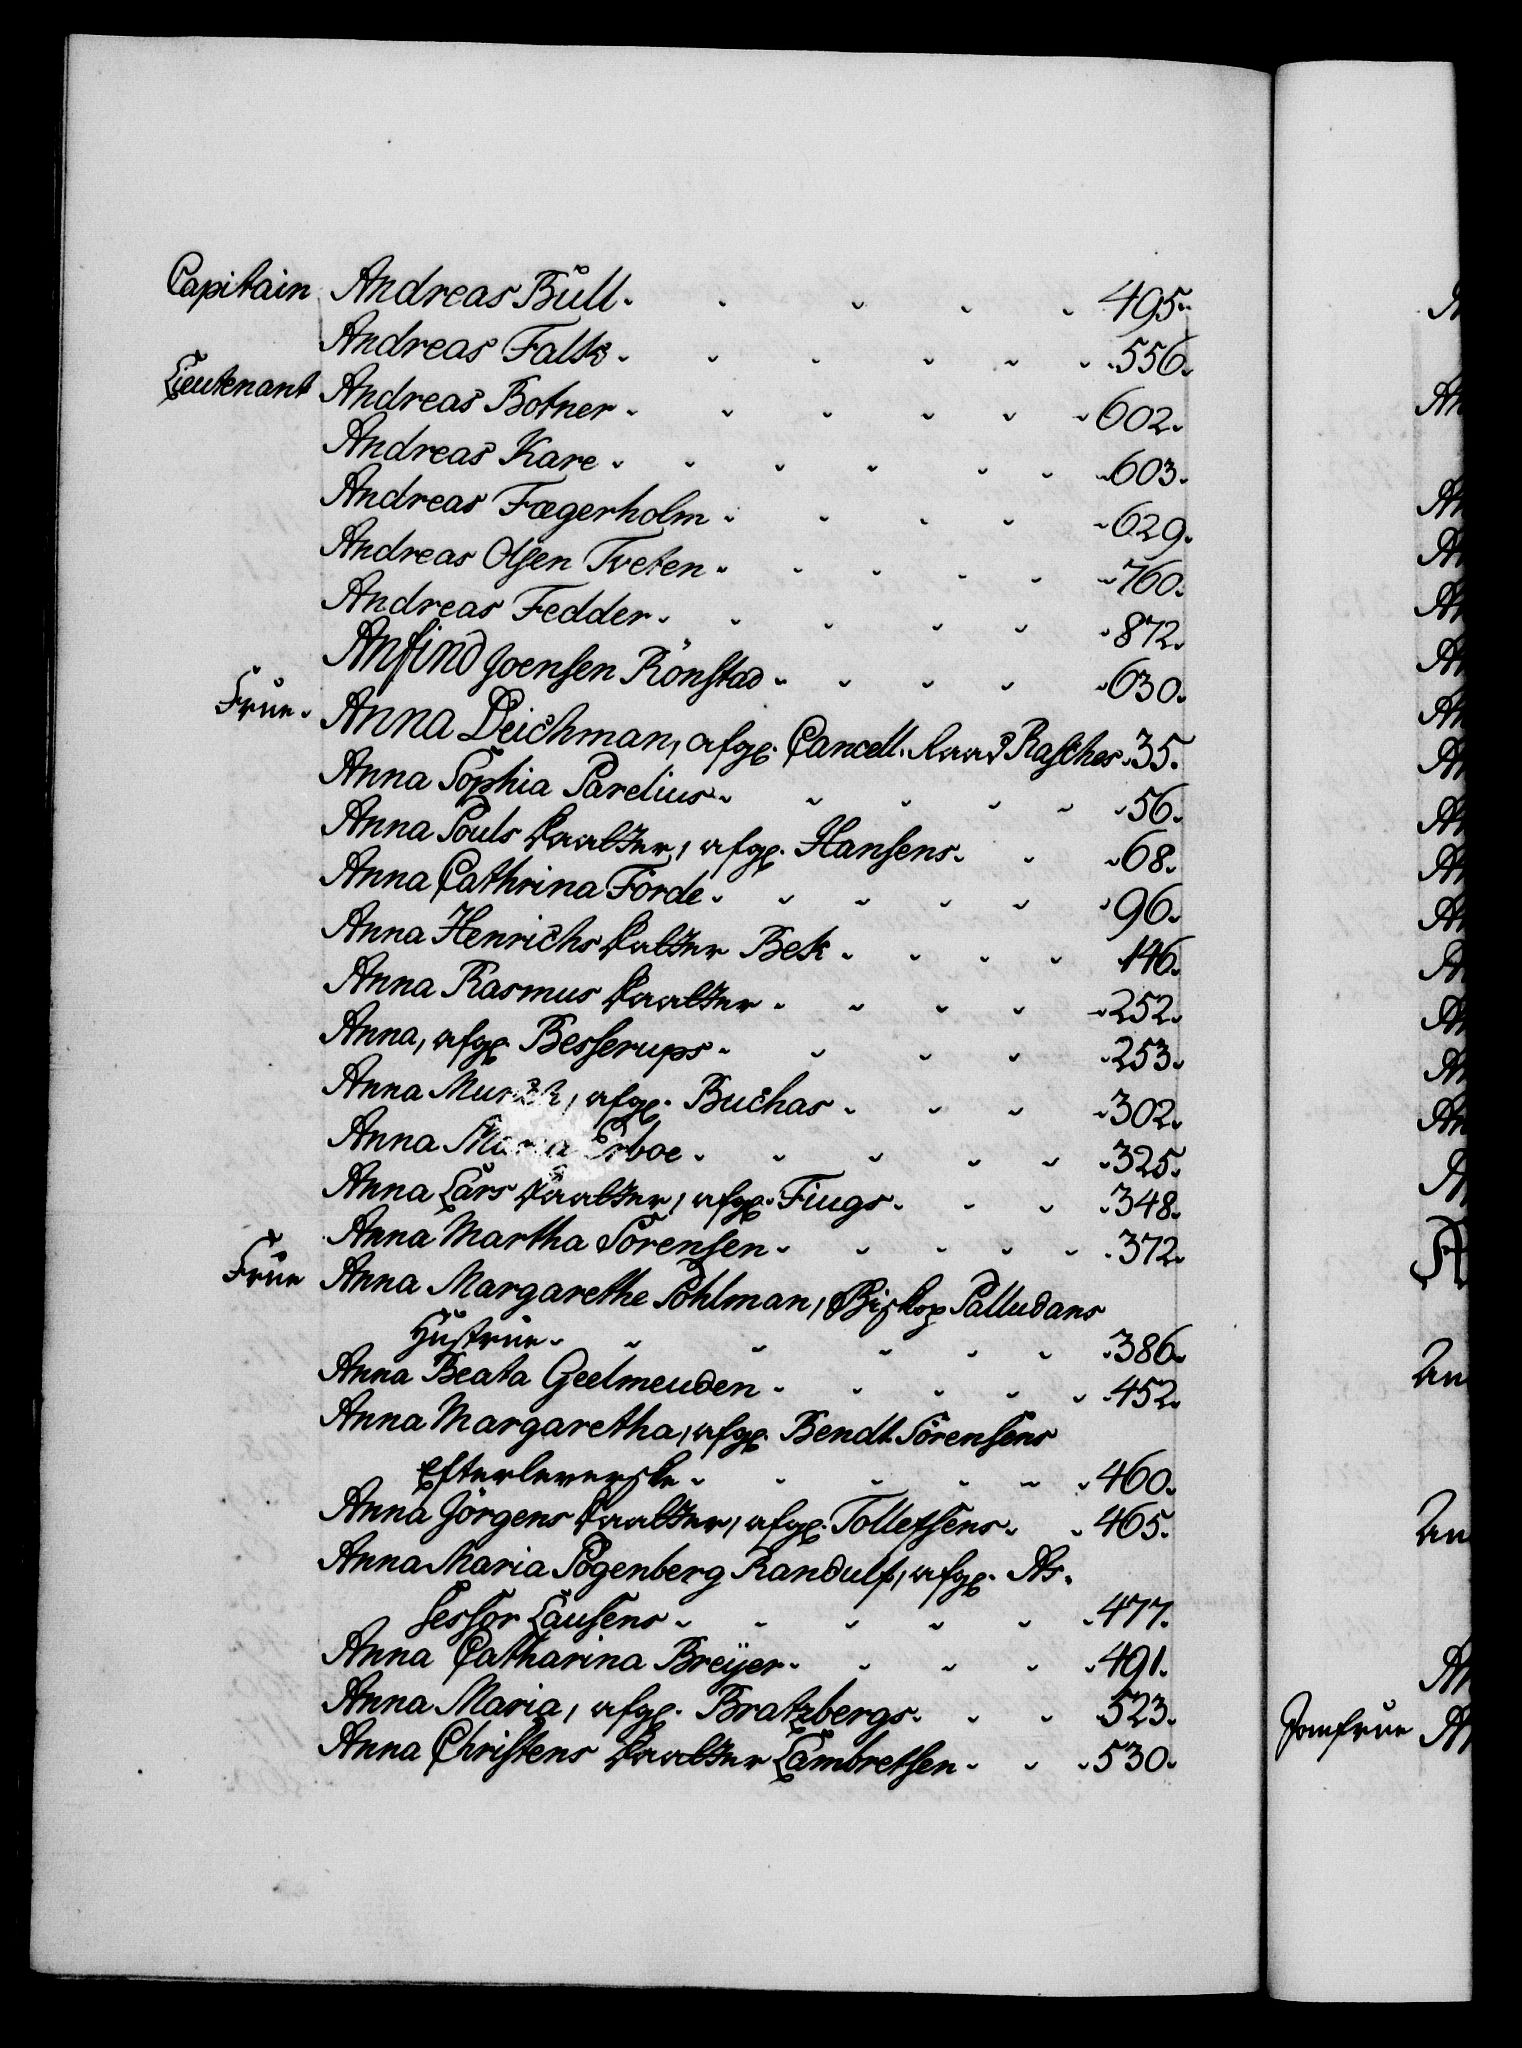 Capitain Andreas Bull. 495.
Andreas Falk. 556.
Lieutenant Andreas Botner. 602.
Andreas Kare. 603.
Andreas Fægerholm. 629.
Andreas Olsen Tveten. 760.
Andreas Fedder. 872.
Anfind Joensen Rönstad 630.
Frue. Anna Deichman, afg. Cancell. Raad Rasches 35.
Anna Sophia Parelius. 56.
Anna Pouls Daatter, afg. Hansens. 68.
Anna Cathrina Förde. 96.
Anna Henrichs Datter Bek. 146.
Anna Rasmus Daatter. 252.
Anna, afg. Besserups. 253.
Anna Munch, afg. Buchas. 302.
Anna Maria Erboe. 325.
Anna Lars Daatter, afg. Fiugs. 348.
Anna Martha Sörensen. 372.
Frue Anna Margarethe Pöhlman, Biskop Palludans
Hustrue. 386.
Anna Beata Geelmeuden. 452.
Anna Margaretha, afg. Bendt Sörensens
Efterleverske. 460.
Anna Jörgens Daatter, afg. Tollefsens. 465.
Anna Maria Pogenberg Randulf, afg. As-
sessor Lausens. 477.
Anna Catharina Breÿer. 491.
Anna Maria, afg. Bratzbergs. 523.
Anna Christens Daatter Lambretsen. 530.
Jomfrue